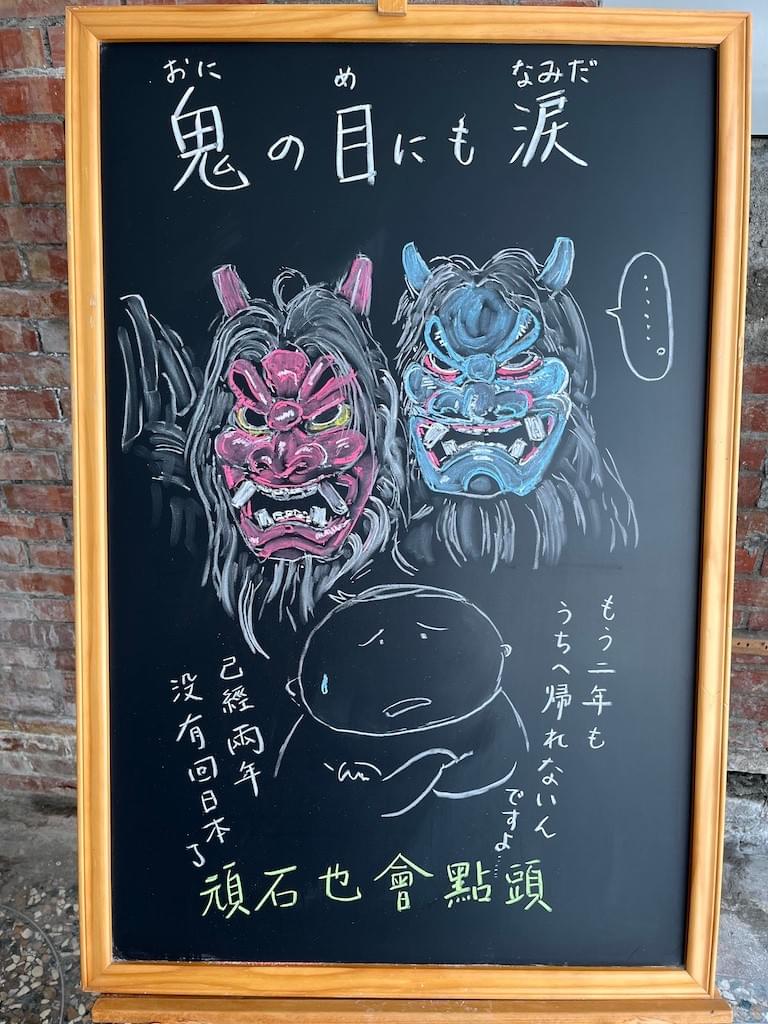 おに め なみだ
鬼の目にも涙
......。
もう二年も
うちへ帰れないん
ですよ......
已經兩年
沒有回日本了
頑石也會點頭